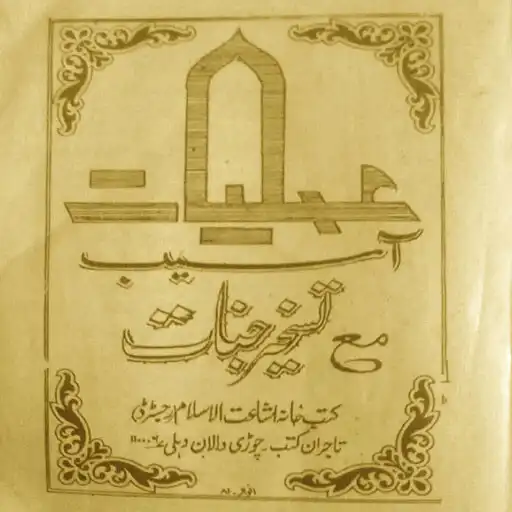 عملیات
آسیب
مع تسخیر جنات
کتب خانہ اشاعت الاسلام (رجسٹرڈ)
تاجران کتب۔ چوڑی والان دہلی ۱۱۰۰۰۶